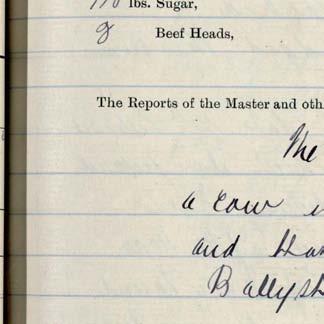 lbs. Sugar,
8 Beef Heads,
The Reports of the Master and oth
The
a cow
and
Ballysh